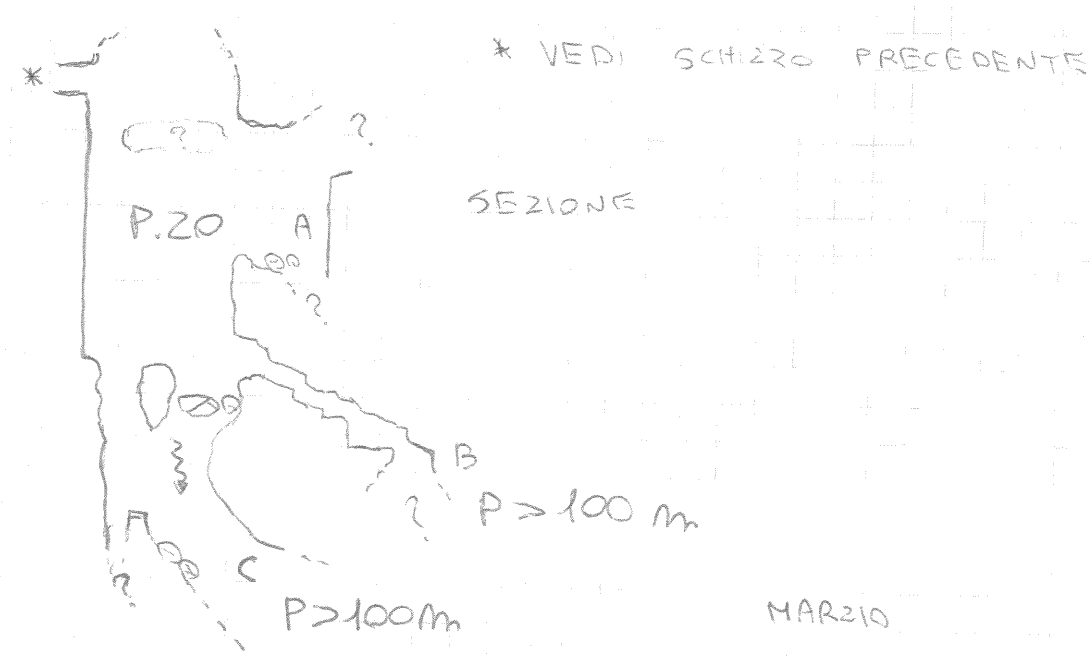 * VEDI SCHIZZO PRECEDENTE
*
?
?
P.20
A
SEZIONE
?
B
?
P > 100 m
?
C
P>100m
MARZIO